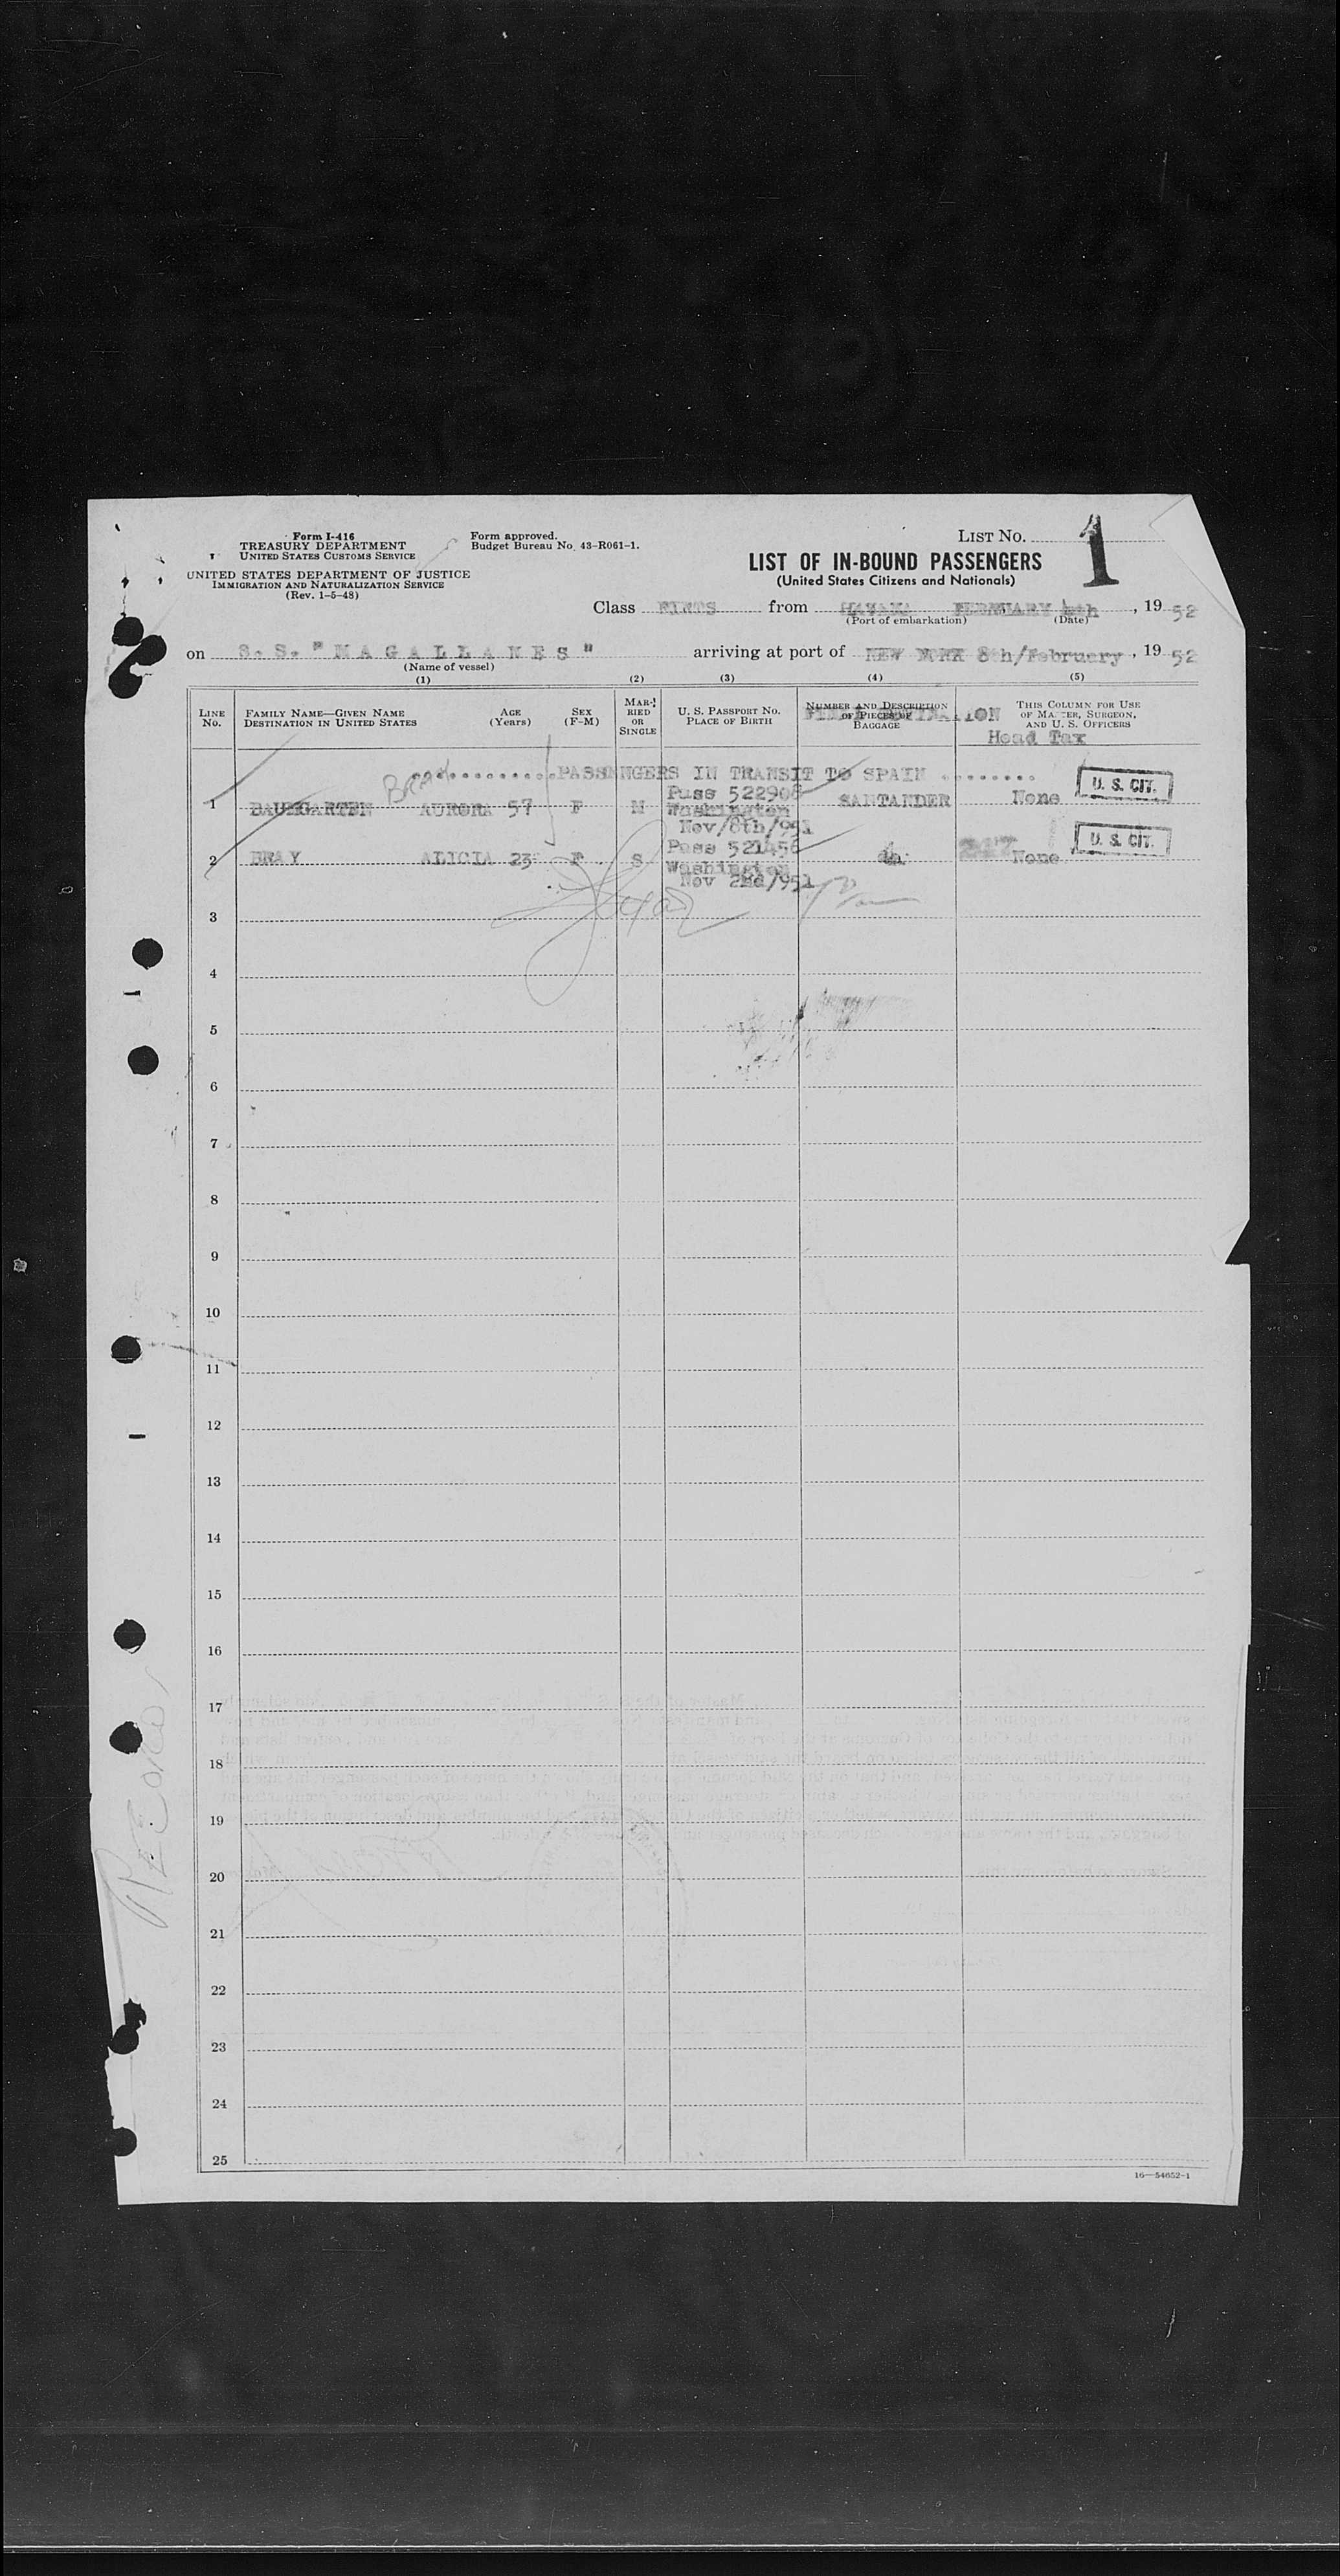 Form I-416
TREASURY DEPARTMENT
UNITED STATES CUSTOMS SERVICE
UNITED STATES DEPARTMENT OF JUSTICE
IMMIGRATION AND NATURALIZATION SERVICE
(Rev. 1-5-48)
Form approved.
Budget Bureau No. 43-R061-1.
LIST NO. 1
LIST OF IN-BOUND PASSENGERS
(United States Citizens and Nationals)
Class FIRTS from HAVANA FEBRUARY 4th, 19 52
(Port of embarkation) (Date)
on S. S. "MAGALLANES" arriving at port of NEW YORK 8th/February, 19 52
(Name of vessel)
(1) (2) (3) (4) (5)
LINE NO.
FAMILY NAME—GIVEN NAME
DESTINATION IN UNITED STATES
AGE
(Years)
SEX
(F-M)
MARRIED
OR
SINGLE
U. S. PASSPORT NO.
PLACE OF BIRTH
NUMBER AND DESCRIPTION
OF PIECES OF
BAGGAGE
THIS COLUMN FOR USE
OF MASTER, SURGEON,
AND U. S. OFFICERS
Head Tax
..........PASSENGERS IN TRANSIT TO SPAIN ........
Bray
1 BAUMGARTEN AURORA 57 F M Pass 522908 SANTANDER None U. S. CIT.
Washington
Nov/8th/951
2 BRAY ALICIA 23 F S Pass 521456 do None U. S. CIT.
Washington
Nov 2nd/951
3
4
5
6
7
8
9
10
11
12
13
14
15
16
17
18
19
20
21
22
23
24
25
16—54652-1